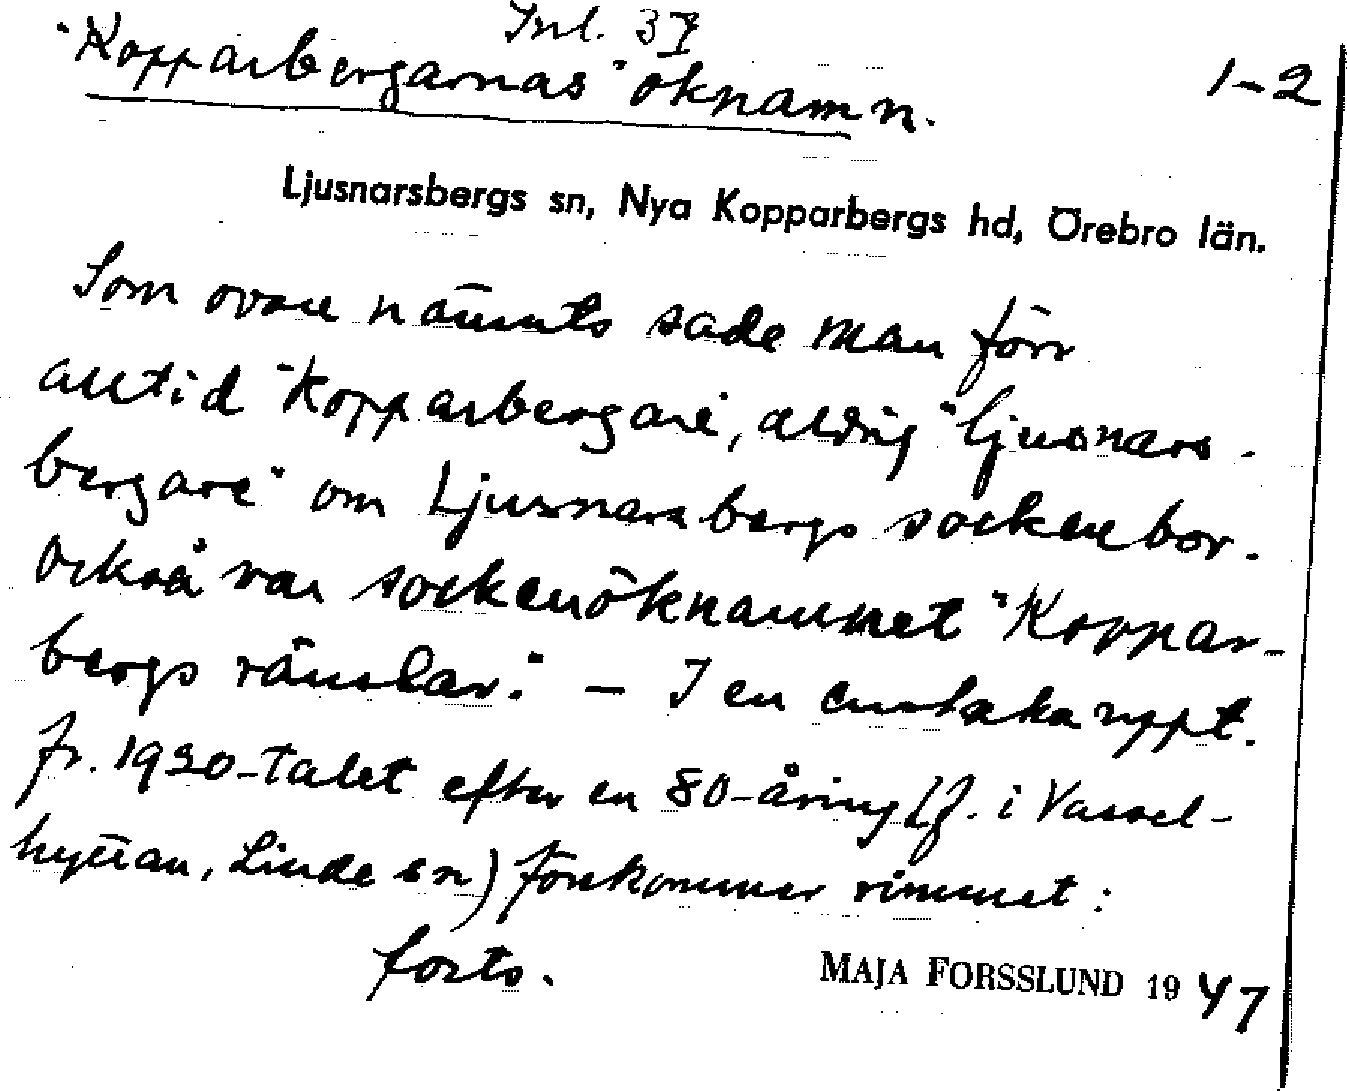 Inl. 37
"Kopparbergarnas" öknamn.
1-2
Ljusnarsbergs sn, Nya Kopparbergs hd, Örebro län.
Som ovan nämnts sade man förr
alltid "Kopparbergare", aldrig "ljusnars-
bergare" om Ljusnarsbergs sockenbor.
Också var sockenöknamnet "Koppar-
bergs ränslar." - I en enstaka uppt.
fr. 1920-talet efter en 80-åring (f. i Vassel-
hyttan, Linde sn) förekommer rimmet:
forts.
MAJA FORSSLUND 1947